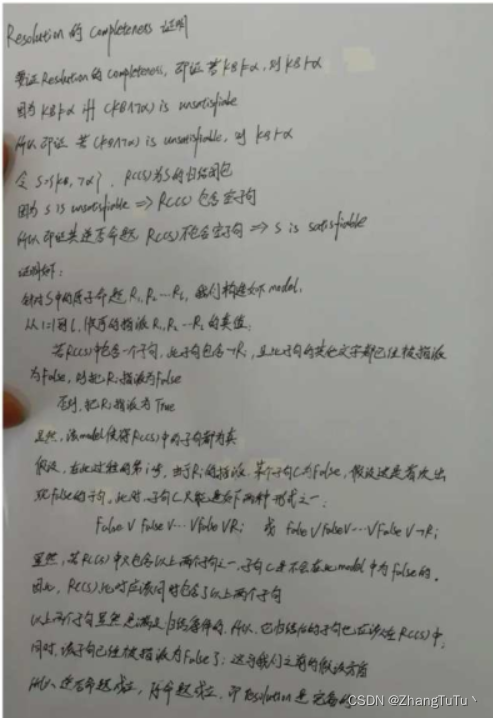 Resolution 的 Completeness 证明
要证Resolution的 completeness, 即证 若 KB⊨α, 则 KB⊢α
因为 KB⊨α iff (KB∧¬α) is unsatisfiable
所以即证 若 (KB∧¬α) is unsatisfiable, 则 KB⊢α
令 S={KB, ¬α}, RC(S)为S的归结闭包
因为 S is unsatisfiable ⇒ RC(S) 包含空子句
所以即证其逆否命题, RC(S)不包含空子句 ⇒ S is satisfiable
证明如下:
针对S中的原子命题, 我们构建如下model,
从i=1到, 的真值:
若RC(S)中包含一个子句, 此子句包含¬Ri, 且此子句的其他文字都已经被指派
为False, 则把Ri指派为False
否则, 把Ri指派为True
显然, 该model使得RC(S)中的子句都为真
假设, 在此过程的第i步, 由于Ri的指派, 某个子句C为False, 假设这是首次出
现False的子句, 此时, 子句C只能是如下两种形式之一:
False∨False∨···∨False∨Ri 或 False∨False∨···∨False∨¬Ri
显然, 若RC(S)中只包含以上两个子句之一, 子句C是不会在此model中为False的.
因此, RC(S)此时应该同时包含了以上两个子句
以上两个子句显然是满足归结条件的, 所以, 它归结后的子句也应该在RC(S)中,
同时, 该子句已经被指派为False了; 这与我们之前的假设矛盾
所以, 逆否命题成立, 原命题成立, 即Resolution是完备的
CSDN @ZhangTuTu丶